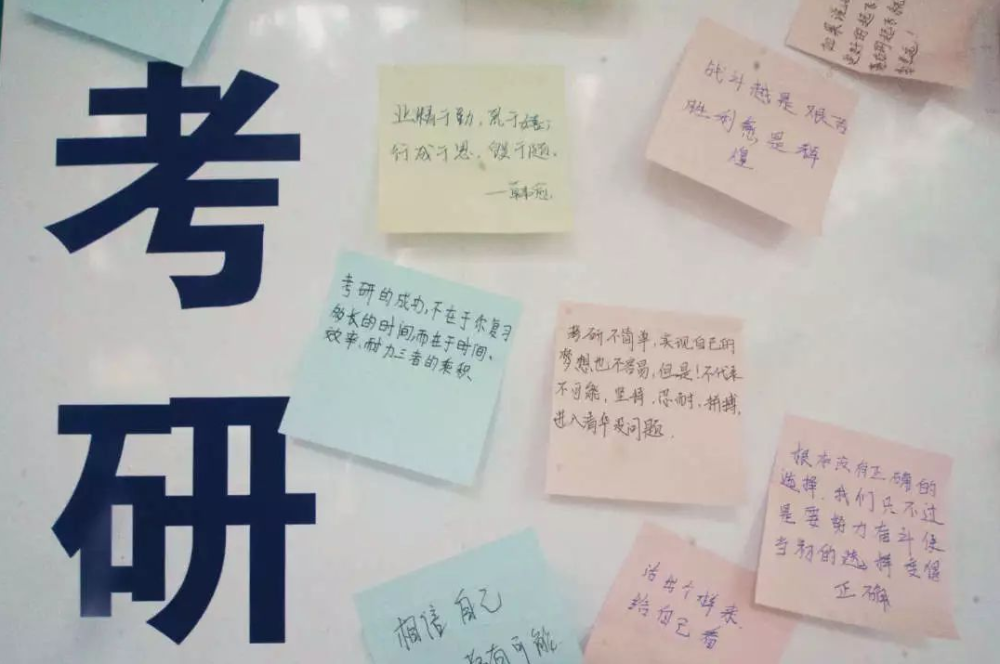 考
研
业精于勤,荒于嬉;
行成于思,毁于随。
——韩愈
战斗越是艰苦
胜利愈是辉
煌
考研的成功,不在于你复习
多长的时间,而在于时间、
效率、耐力三者的乘积
考研不简单,实现自己的
梦想也不容易,但是!不代表
不可能,坚持,忍耐,拼搏,
进入清华没问题.
根本没有正确的
选择,我们只不过
是要努力奋斗使
当初的选择变得
正确
相信自己
有可能
活出个样来
给自己看